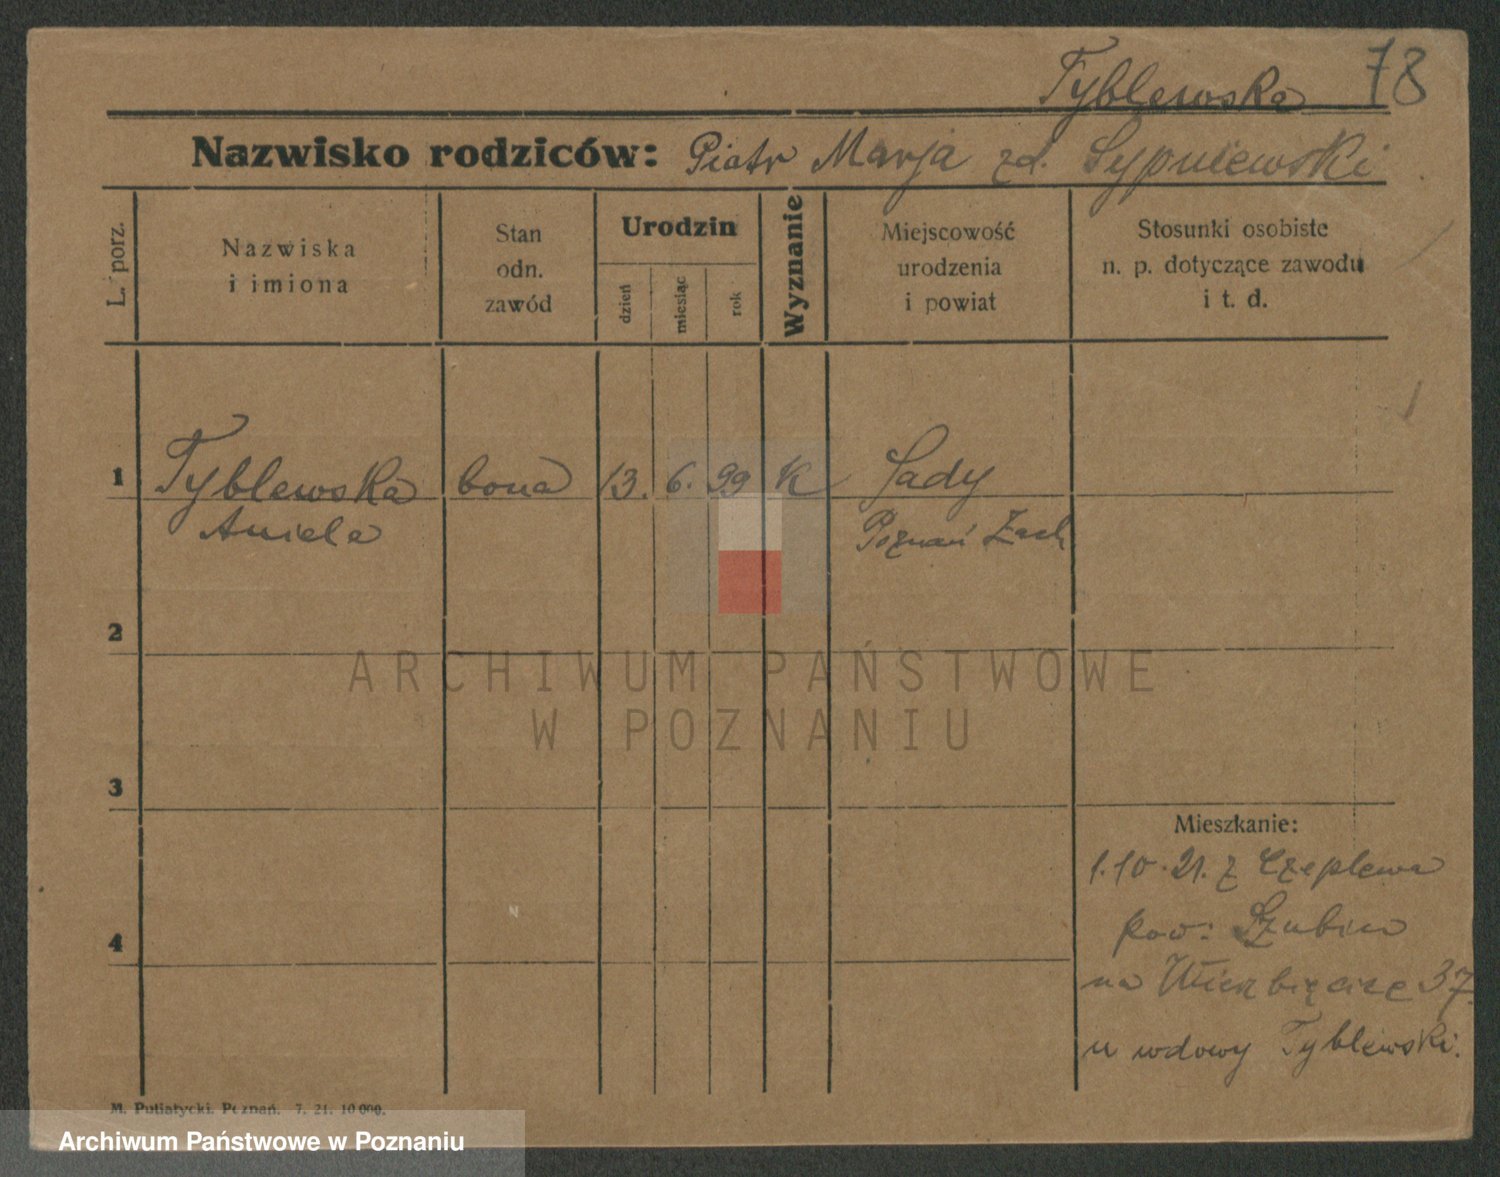 Tyblewska 78
Nazwisko rodziców: Piotr Marja zd. Sypniewski
L. porz.
Nazwiska
i imiona
Stan
odn.
zawód
Urodzin
dzień
miesiąc
rok
Wyznanie
Miejscowość
urodzenia
i powiat
Stosunki osobiste
n. p. dotyczące zawodu
i t. d.
1 Tyblewska bona 13. 6. 99 K Sady
Aniela Poznań Zach
2
3
4
Mieszkanie:
1.10.21. z Czeplewa
pow: Szubin
na Wierzbięcice 37
u wdowy Tyblewski.
M. Putiatycki. Poznań. 7. 21. 10 000.
ARCHIWUM PAŃSTWOWE
W POZNANIU
Archiwum Państwowe w Poznaniu